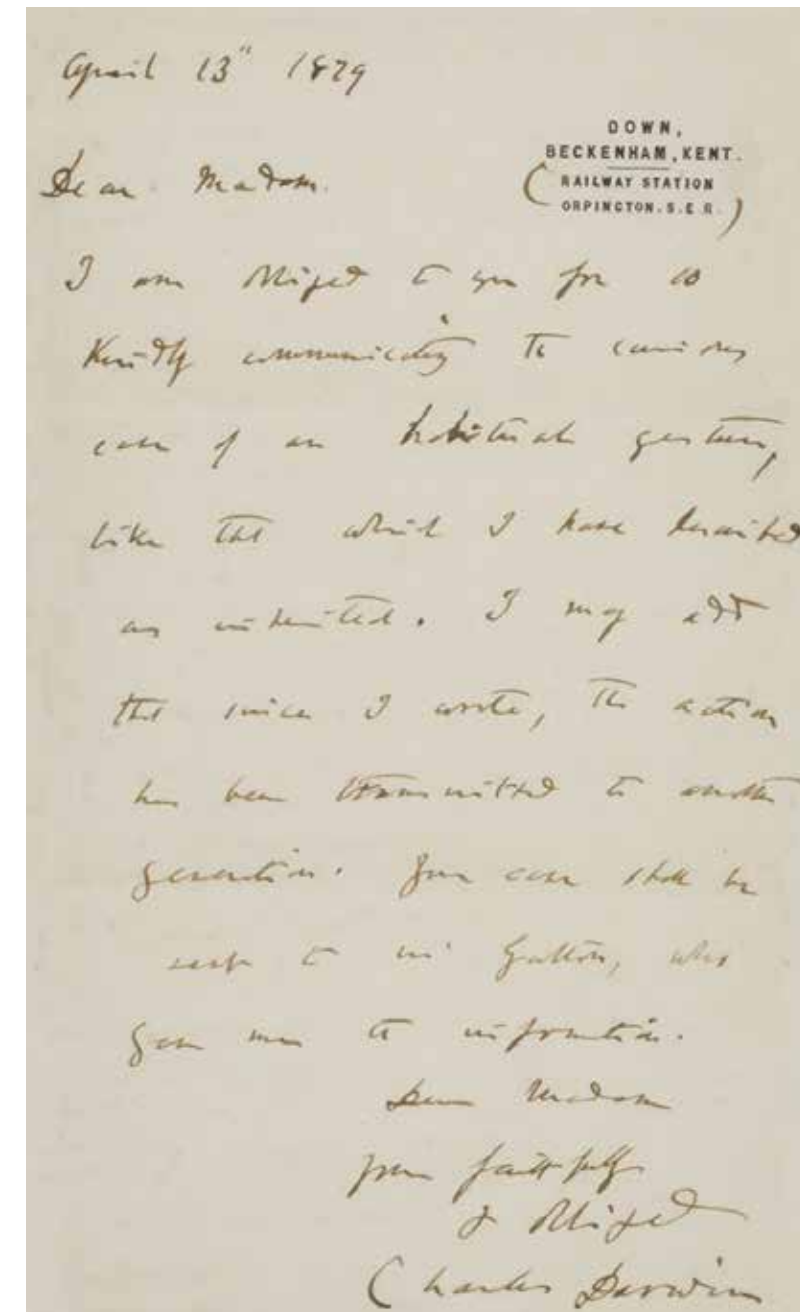 April 13th 1879
DOWN,
BECKENHAM, KENT.
(RAILWAY STATION
ORPINGTON. S.E.R.)
Dear Madam.
I am obliged to you for so
kindly communicating the curious
case of an habitual gesture,
like that which I have described
as inherited. I may add
that since I wrote, the action
has been transmitted to another
generation. Your case shall be
sent to Mr Galton, who
gave me the information.
Dear Madam
Yours faithfully
& obliged
Charles Darwin